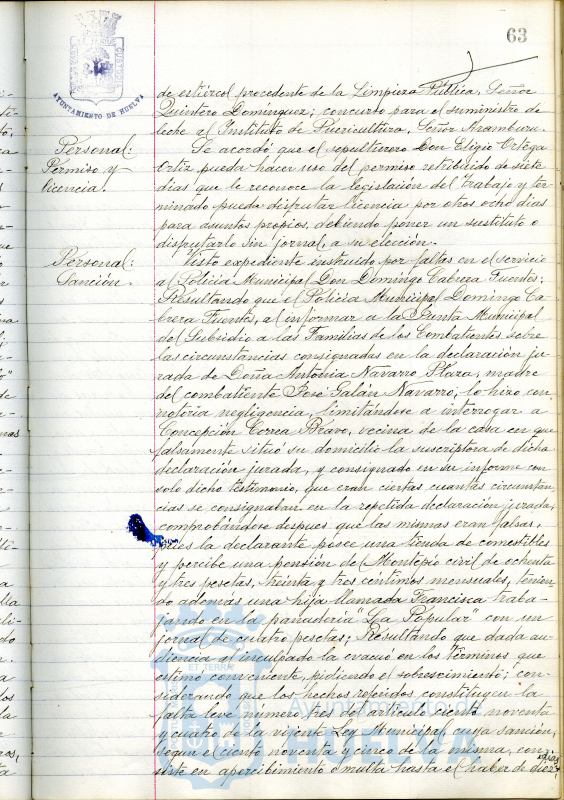 63
AYUNTAMIENTO DE HUELVA
de estiércol procedente de la Limpieza Pública, Señor
Quintero Domínguez; concurso para el suministro de
leche al Instituto de Puericultura, Señor Aramburu.
Personal:
Permiso y
licencia.
Se acordó que el sepulturero Don Eligio Ortega
Ortiz pueda hacer uso del permiso retribuido de siete
dias que le reconoce la legislación del Trabajo y ter-
minado pueda disfrutar licencia por otros ocho dias
para asuntos propios, debiendo poner un sustituto o
disfrutarlo sin jornal, a su elección.
Personal:
Sanción.
Visto expediente instruido por faltas en el servicio
al Policía Municipal Don Domingo Cabrera Fuentes;
Resultando que el Policía Municipal Domingo Ca-
brera Fuentes, al informar a la Junta Municipal
del Subsidio a las Familias de los Combatientes sobre
las circunstancias consignadas en la declaración ju-
rada de Doña Antonia Navarro Plaza, madre
del combatiente José Galán Navarro, lo hizo con
notoria negligencia, limitándose a interrogar a
Concepción Correa Bravo, vecina de la casa en que
falsamente situó su domicilio la suscriptora de dicha
declaración jurada, y consignado en su informe con
solo dicho testimonio, que eran ciertas cuantas circunstan
cias se consignaban en la repetida declaración jurada,
comprobándose despues que las mismas eran falsas,
pues la declarante posee una tienda de comestibles
y percibe una pensión del Montepio civil de ochenta
y tres pesetas, treinta y tres céntimos mensuales, tenien
do además una hija llamada Francisca traba-
jando en la panadería "La Popular" con un
jornal de cuatro pesetas; Resultando que dada au-
diencia al inculpado la evacuó en los términos que
estimó conveniente, pidiendo el sobreseimiento; con-
siderando que los hechos referidos constituyen la
falta leve número tres del artículo ciento noventa
y cuatro de la vijente Ley Municipal cuya sanción,
según el ciento noventa y cinco de la misma, con-
siste en apercibimiento o multa hasta el haber de diez